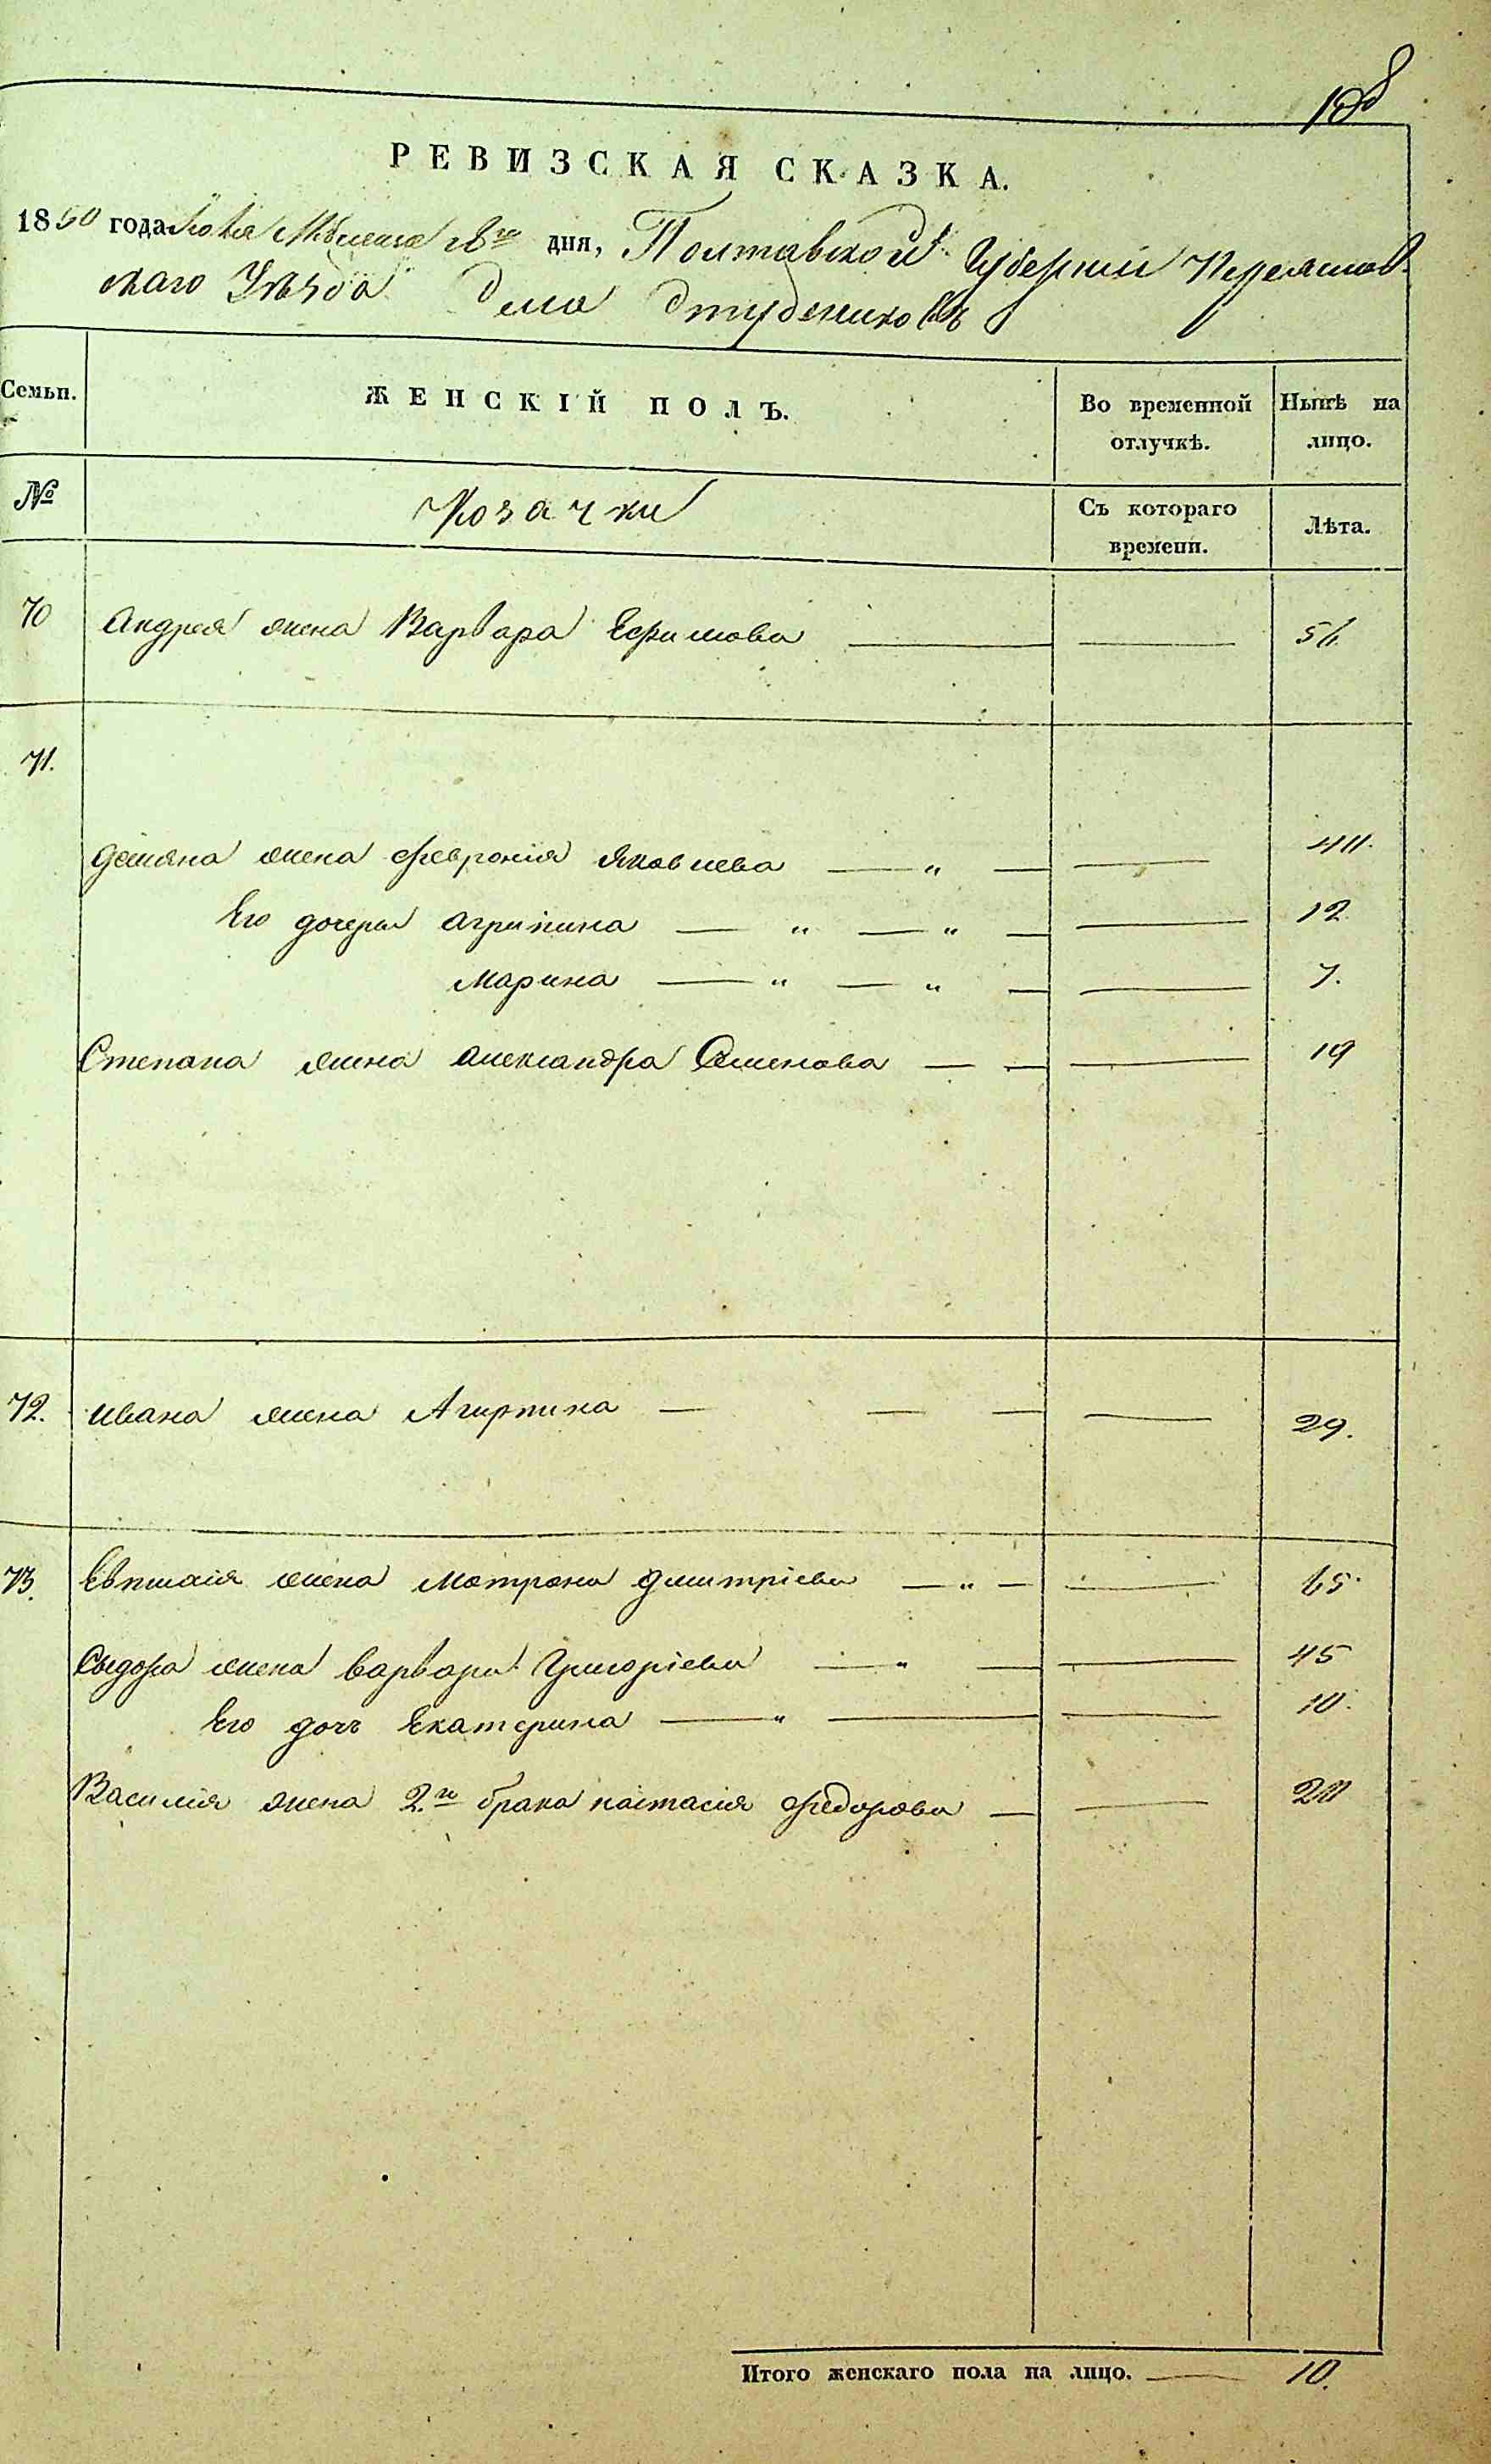 198
РЕВИЗСКАЯ СКАЗКА.
1850 года Мѣсяца дня, Полтавской Губерніи Переяслав-
скаго Уѣзда Села Студениковъ
Семьи. ЖЕНСКІЙ ПОЛЪ. Во временной отлучкѣ. Нынѣ на лицо.
№ Козачки Съ котораго времени. Лѣта.
70 Андрея жена Варвара Ефимова
71.
Демяна жена Февронія Яковлева
Его дочери Агрипина 12
Марина 7.
Степана жена Александра Семенова 19
72. Ивана жена Агирпина 29.
73. Евтихія жена Мотрона Дмитріева 65.
Сыдора жена Варвара Григоріева 45
Его дочь Екатерина 10.
Василія жена 2.го брака Настасія Федорова 20
Итого женскаго пола на лицо. 10.